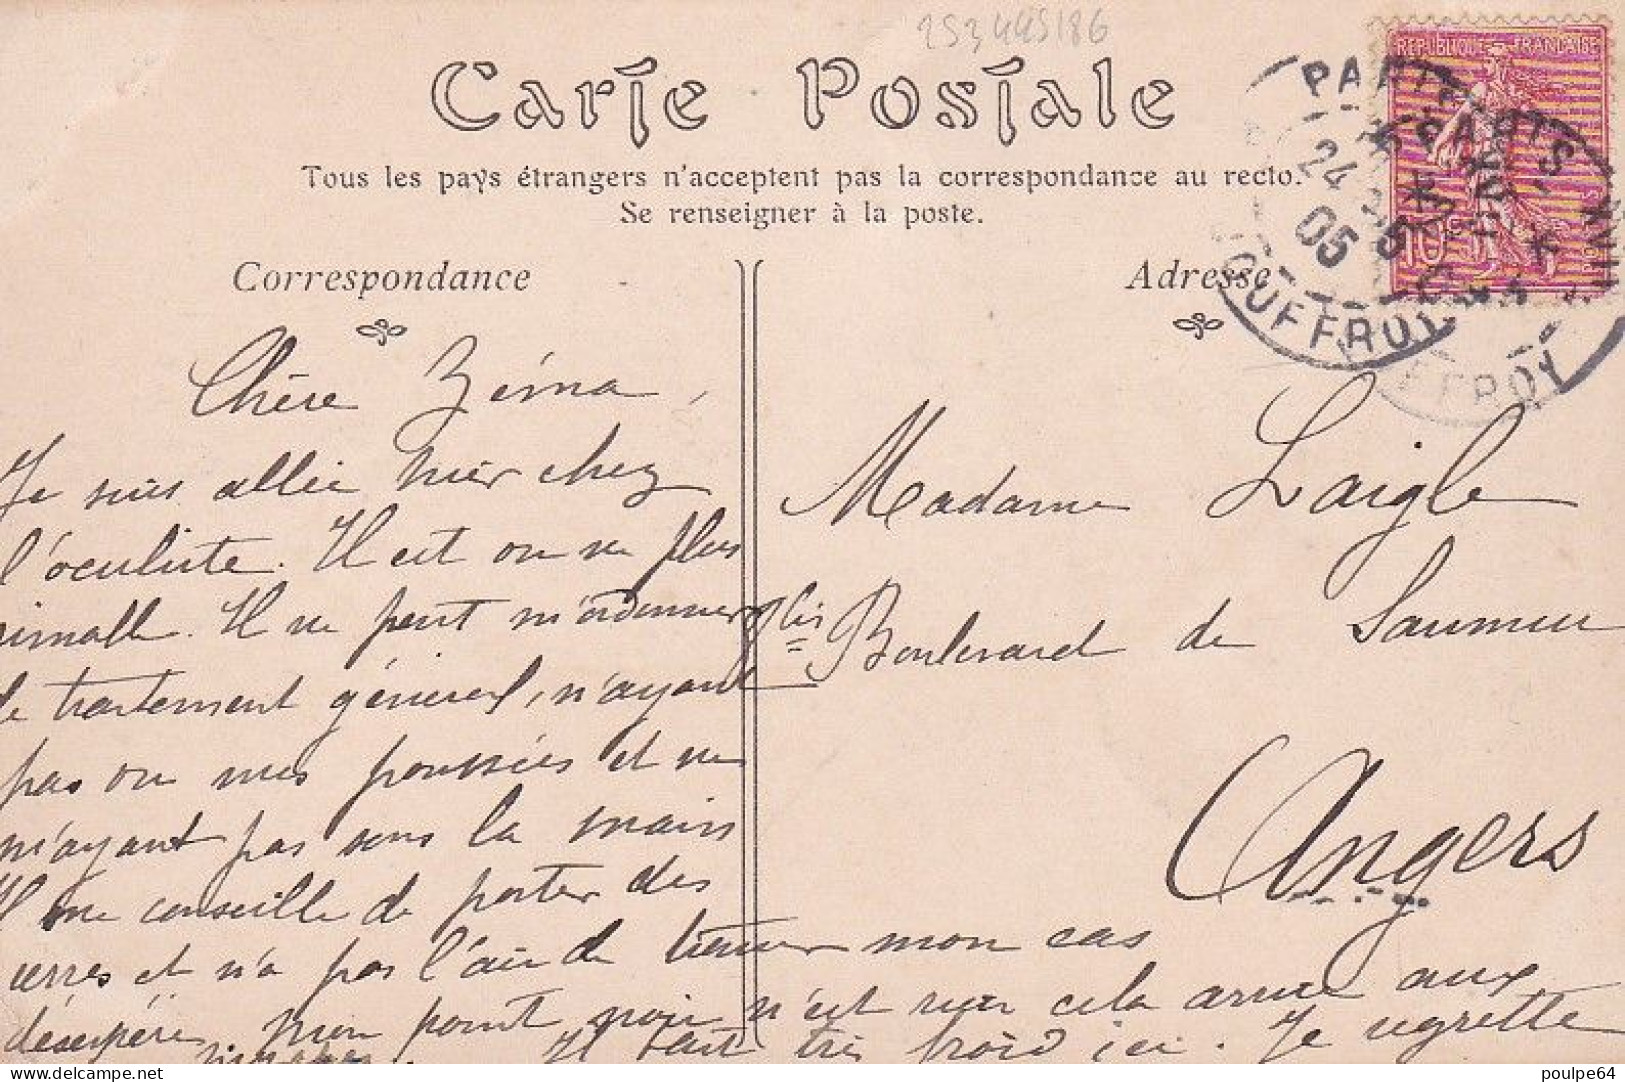 253445186
Carte Postale
Tous les pays étrangers n'acceptent pas la correspondance au recto.
Se renseigner à la poste.
REPUBLIQUE FRANCAISE
10c
POSTES
PARIS
24
05
Correspondance
Adresse
Chère Zéina,
Je suis allée hier chez
l'oculiste. Il est on ne plus
aimable. Il ne peut m'ordonner
de traitement général, n'ayant
pas vu mes poussées et ne
m'ayant pas sous la main
Il me conseille de porter des
verres et n'a pas l'air de trouver mon cas
désespéré, mon point noir n'est rien cela arrive aux
myopes. Il fait très froid ici. Je regrette
Madame Laigle
bis Boulevard de Saumur
Angers
Delcampe.net
poulpe64